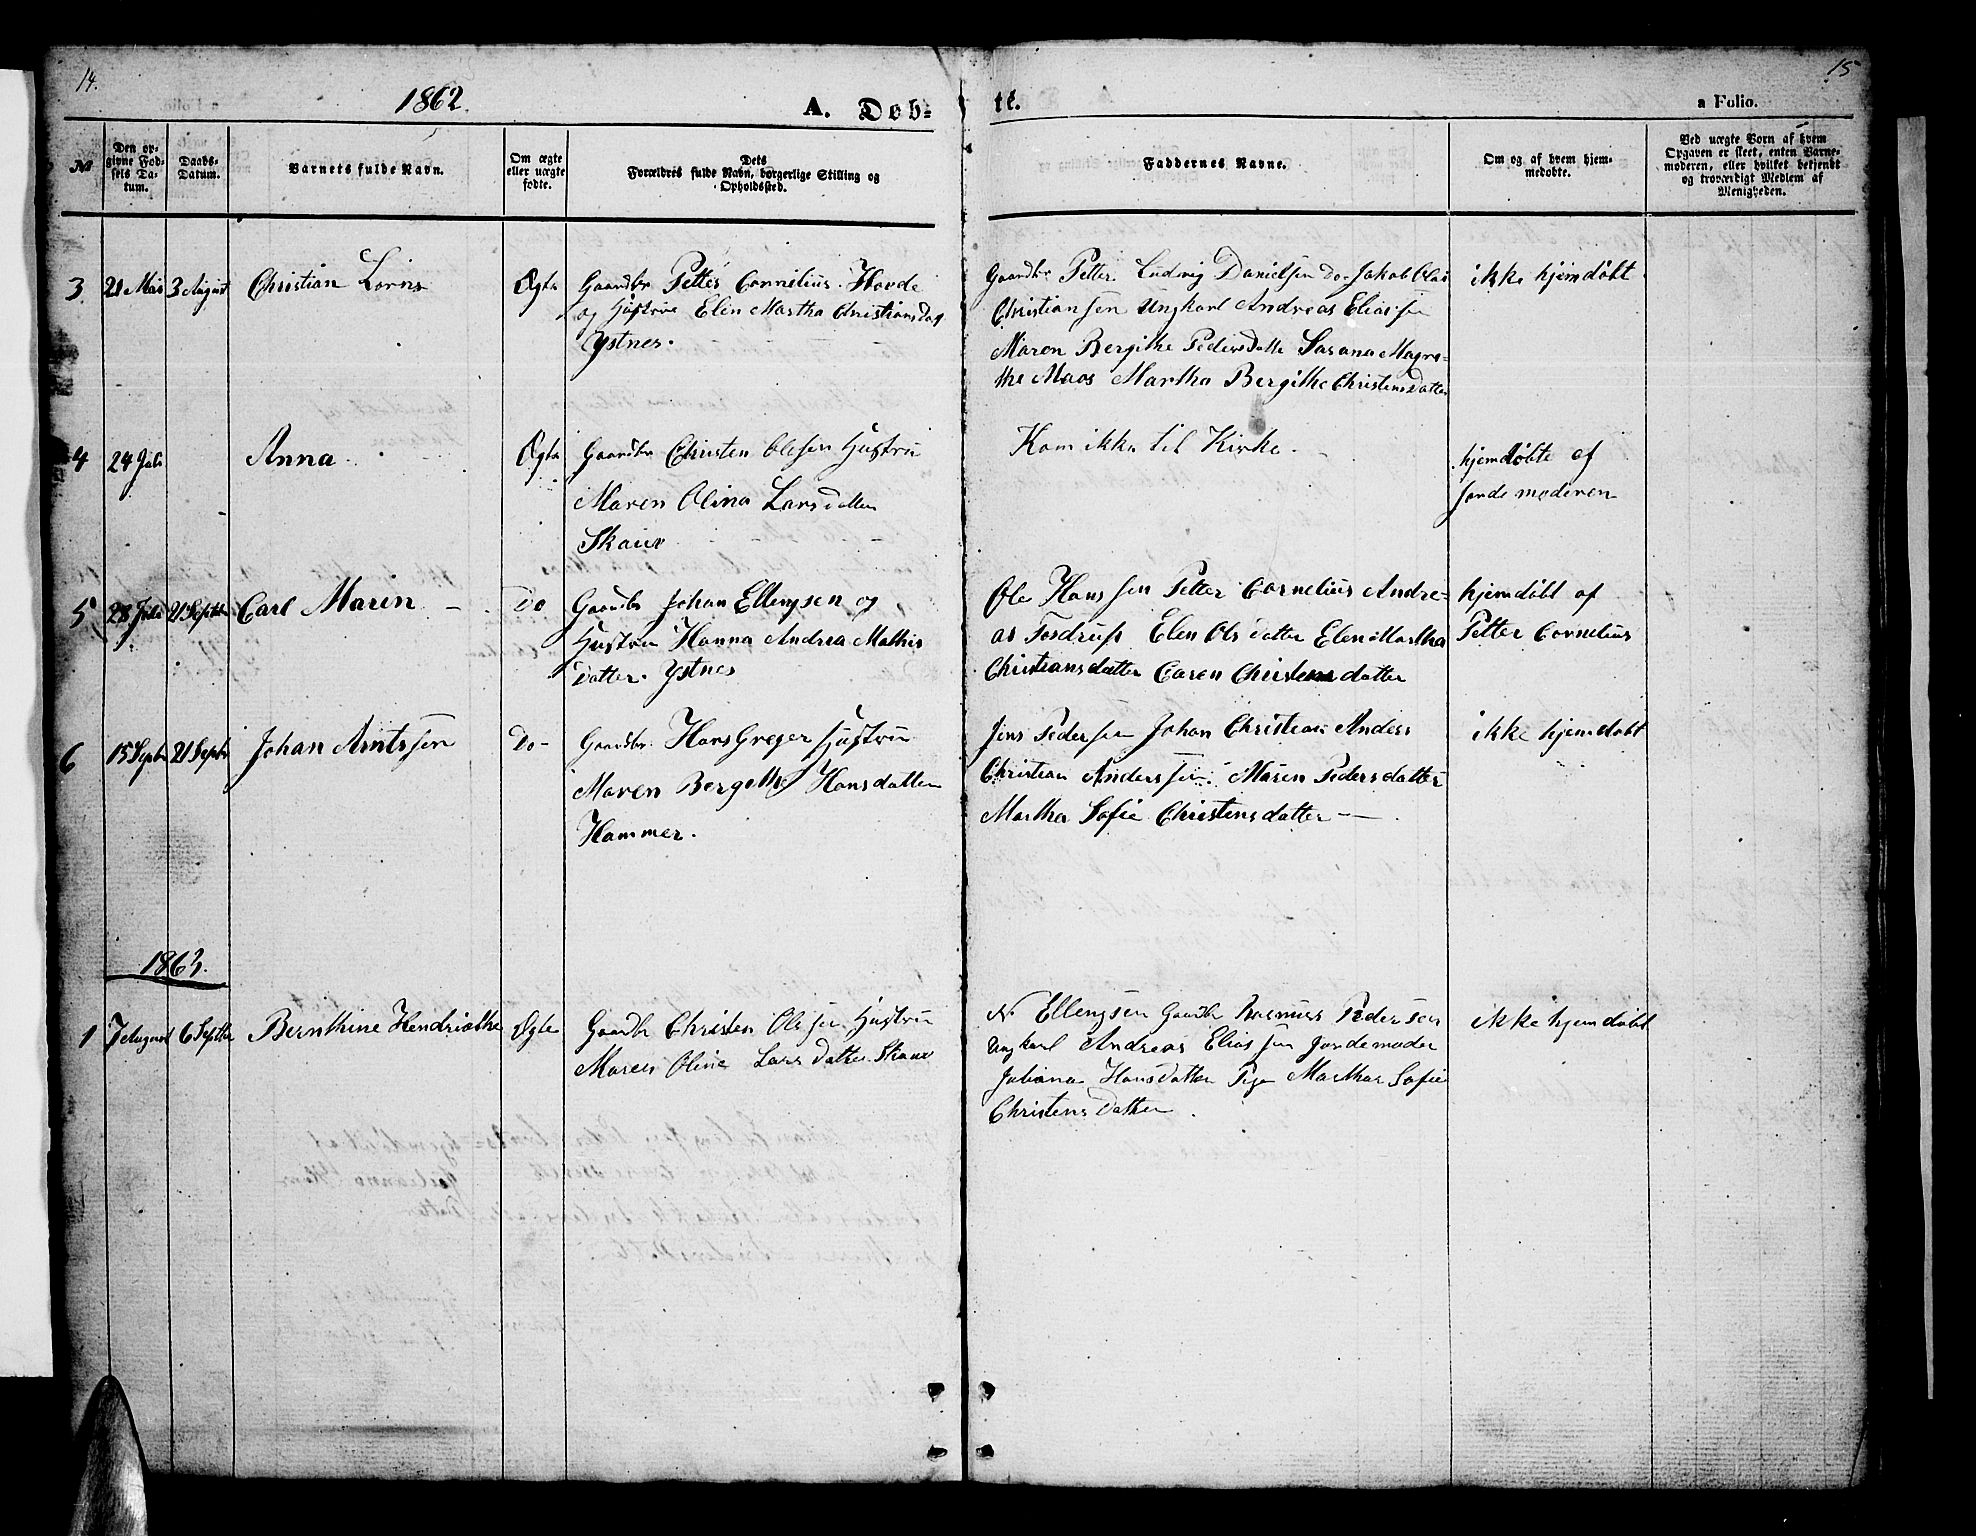 14.
15
1862.
A. Døb=
te.
a Folio.
№
Den op-
givne Fød-
sels Da-
tum.
Daabs-
Datum.
Barnets fulde Navn.
Om ægte
eller uægte
fødte.
Dets
Forældres fulde Navn, borgerlige Stilling og
Opholdssted.
Faddernes Navne.
Om og af hvem hjem-
medøbte.
Ved uægte Børn af hvem
Opgaven er skeet, enten Barne-
moderen, eller hvilket bekjendt
og troværdigt Medlem af
Menigheden.
3 21 Mai 3 August Christian Lorns Ægte
Gaardbr Petter Cornelius Hovde
og Hustrue Elen Martha Christiansdag
Ystnes.
Gaardbr Petter Ludvig Danielsen Do Jakob Olai
Christiansen Ungkarl Andreas Eliassen
Maren Bergithe Pedersdatte Sasana Magre-
the Maos Martha Bergithe Christensdatter
ikke hjemdøbt
4 24 Juli Anna Ægte
Gaardbr Christen Olesen Hustru
Maren Olina Larsdatter
Skaue
Kom ikke til Kirke.
hjemdøbte af
Jordemoderen
5 28 Juli 21 Septbr Carl Marin - Do
Gaardbr Johan Ellengsen og
Hustrue Hanna Andrea Mathis
datter. Ystnes
Ole Hanssen Petter Cornelius Andre=
as Tosdrup Elen Olsdatter Elen Martha
Christiansdatter Caren Christensdatter
hjemdøbt af
Petter Cornelius
6 15 Septbr 21 Septbr Johan Arntssen Do-
Gaardbr. Hans Greger Hustrue
Maren Bergethe Hansdatter
Hammer.
Jens Pedersen Johan Christian Anders
Christian Anderssen. Maren Pedersdatter
Martha Sofie Christensdatter —
ikke hjemdøbt
1863.
1 7 August 6 Septbr Bernthine Hendriethe Ægte
Gaardbr Christen Olessen Hustrue
Maren Oline Larsdatter Skaue
N Ellengsen Gaardbr Rasmus Pedersen
Ungkarl Andreas Eliassen Jordemoder
Juliana Hansdatter Pige Martha Sofie
Christensdatter.
ikke hjemdøbt